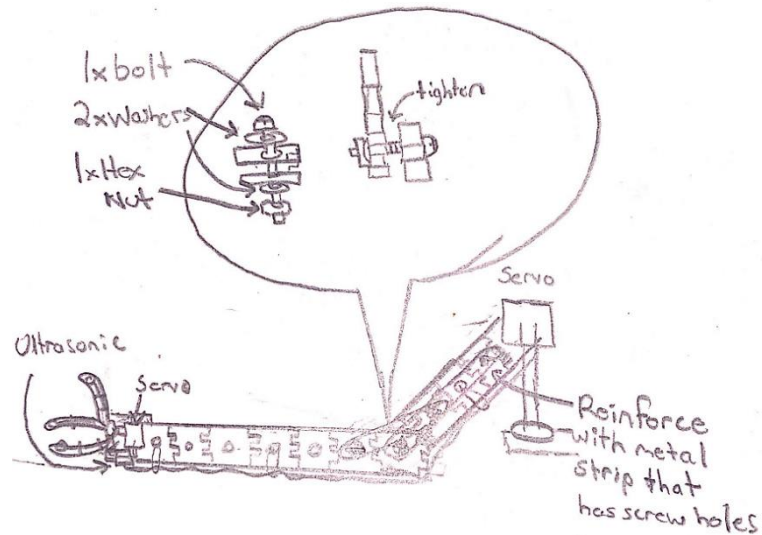 1x bolt
2x Washers
1x Hex
Nut
tighten
Servo
Ultrasonic
Servo
Reinforce
with metal
strip that
has screw holes